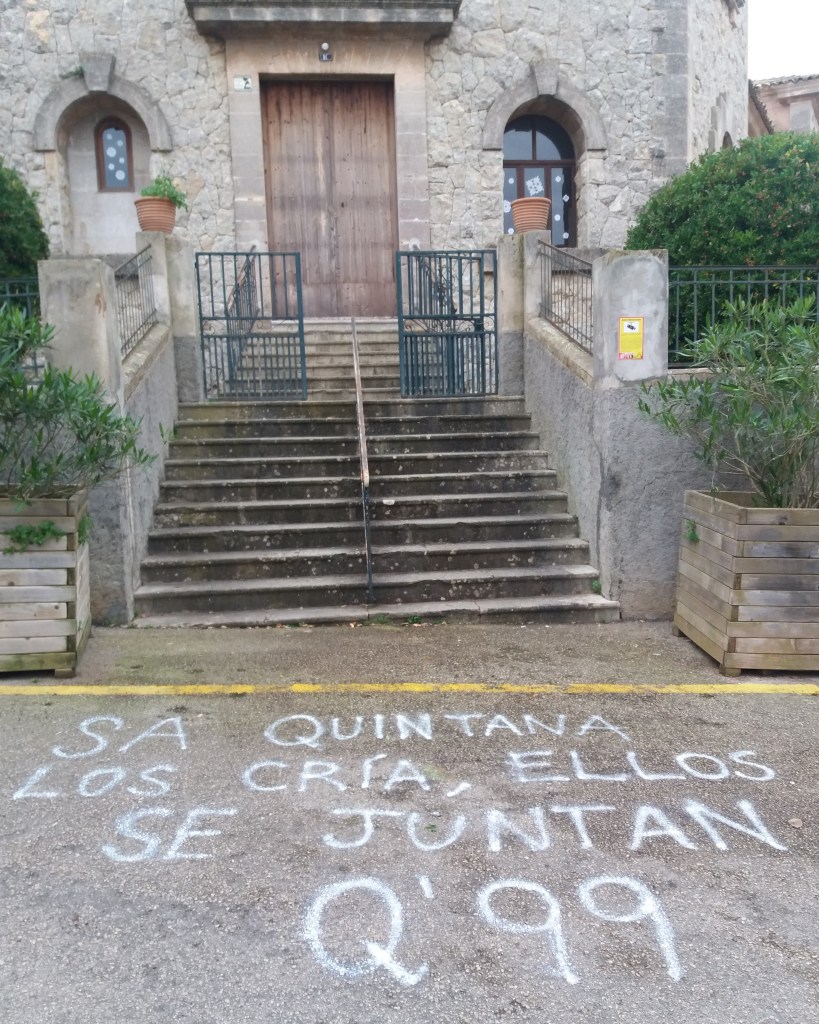 SA QUINTANA
LOS CRÍA, ELLOS
SE JUNTAN
Q'99